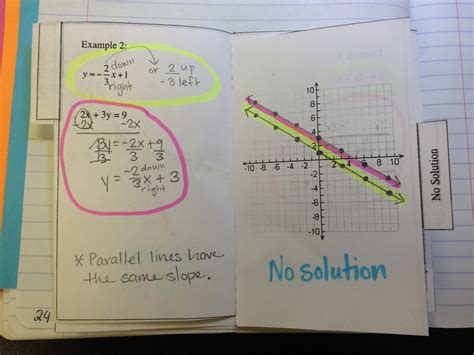 Example 2:
y = -2/3x+1
down
right
or 2 up
-3 left
2x + 3y = 9
-2x -2x
3y = -2x+9
3 3 3
y = -2/3x + 3
down
right
* Parallel lines have
the same slope.
24
10
8
6
4
2
-10 -8 -6 -4 -2 2 4 6 8 10
-2
-4
-6
-8
-10
No solution
No Solution